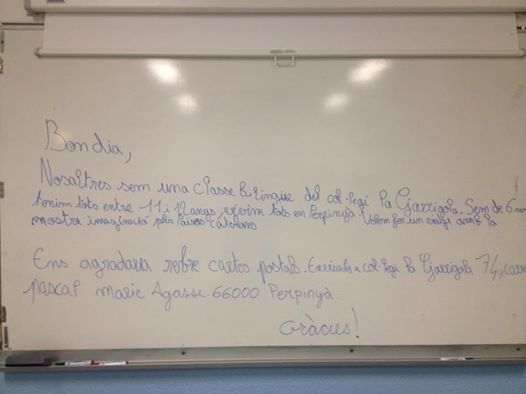 Bon dia,
Nosaltres sem una classe bilingüe del col·legi La Garrigola. Sem de 6
tenim tots entre 11 i 12 anys vivim tots en Perpinyà. Volem fer un viatge amb la
nostra imaginació pels països catalans
Ens agradaria rebre cartes postals. Enviade a col·legi la Garrigola 74, carre
pascal Marie Agasse 66000 Perpinyà.
Gràcies!